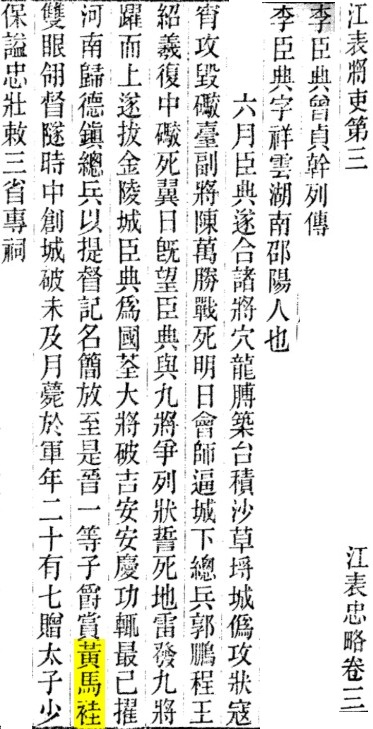 江表將吏第三
江表忠略卷三
李臣典曾貞幹列傳
李臣典字祥雲湖南邵陽人也
六月臣典遂合諸將穴龍膊築台積沙草埒城僞攻狀寇
宵攻毀礮臺副將陳萬勝戰死明日會師逼城下總兵郭鵬程王
紹羲復中礮死翼日旣望臣典與九將爭列狀誓死地雷發九將
躍而上遂拔金陵城臣典爲國荃大將破吉安安慶功輒最已擢
河南歸德鎮總兵以提督記名簡放至是晉一等子爵賞黃馬褂
雙眼翎督隧時中創城破未及月薨於軍年二十有七贈太子少
保謚忠壯敕三省專祠